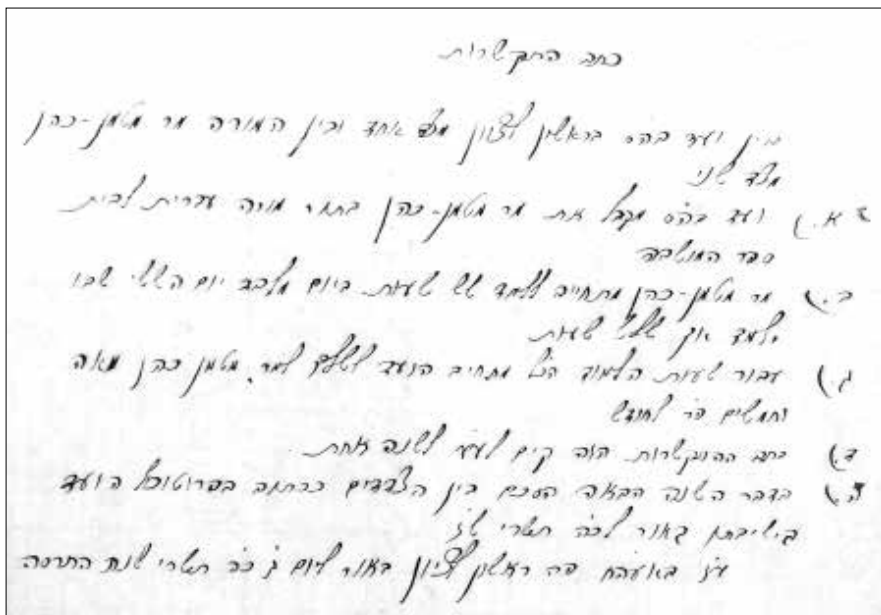 כתב התקשרות
בין ועד ביה"ס בראשון לציון מצד אחד ובין המורה מר מטמן-כהן
מצד שני
א.) ועד ביה"ס מקבל את מר מטמן-כהן בתור מורה עברית לבית
ספר המושבה
ב.) מר מטמן-כהן מתחייב ללמד שש שעות ביום מלבד יום הששי שבו
ילמד אך שלש שעות
ג.) עבור שעות הלמוד הנ"ל מתחיב הועד לשלם למר מטמן כהן מאה
וחמשים פר' לחודש
ד.) כתב ההתקשרות הזה קים לע"ע לשנה אחת.
ה.) בדבר השנה הבאה הסכם בין הצדדים ככתוב בפרוטוכל הועד
בישיבתו באור לכ"ה תשרי
ע"ז באעה"ח פה ראשון לציון באור ליום ג' כ"ה תשרי שנת התרסה